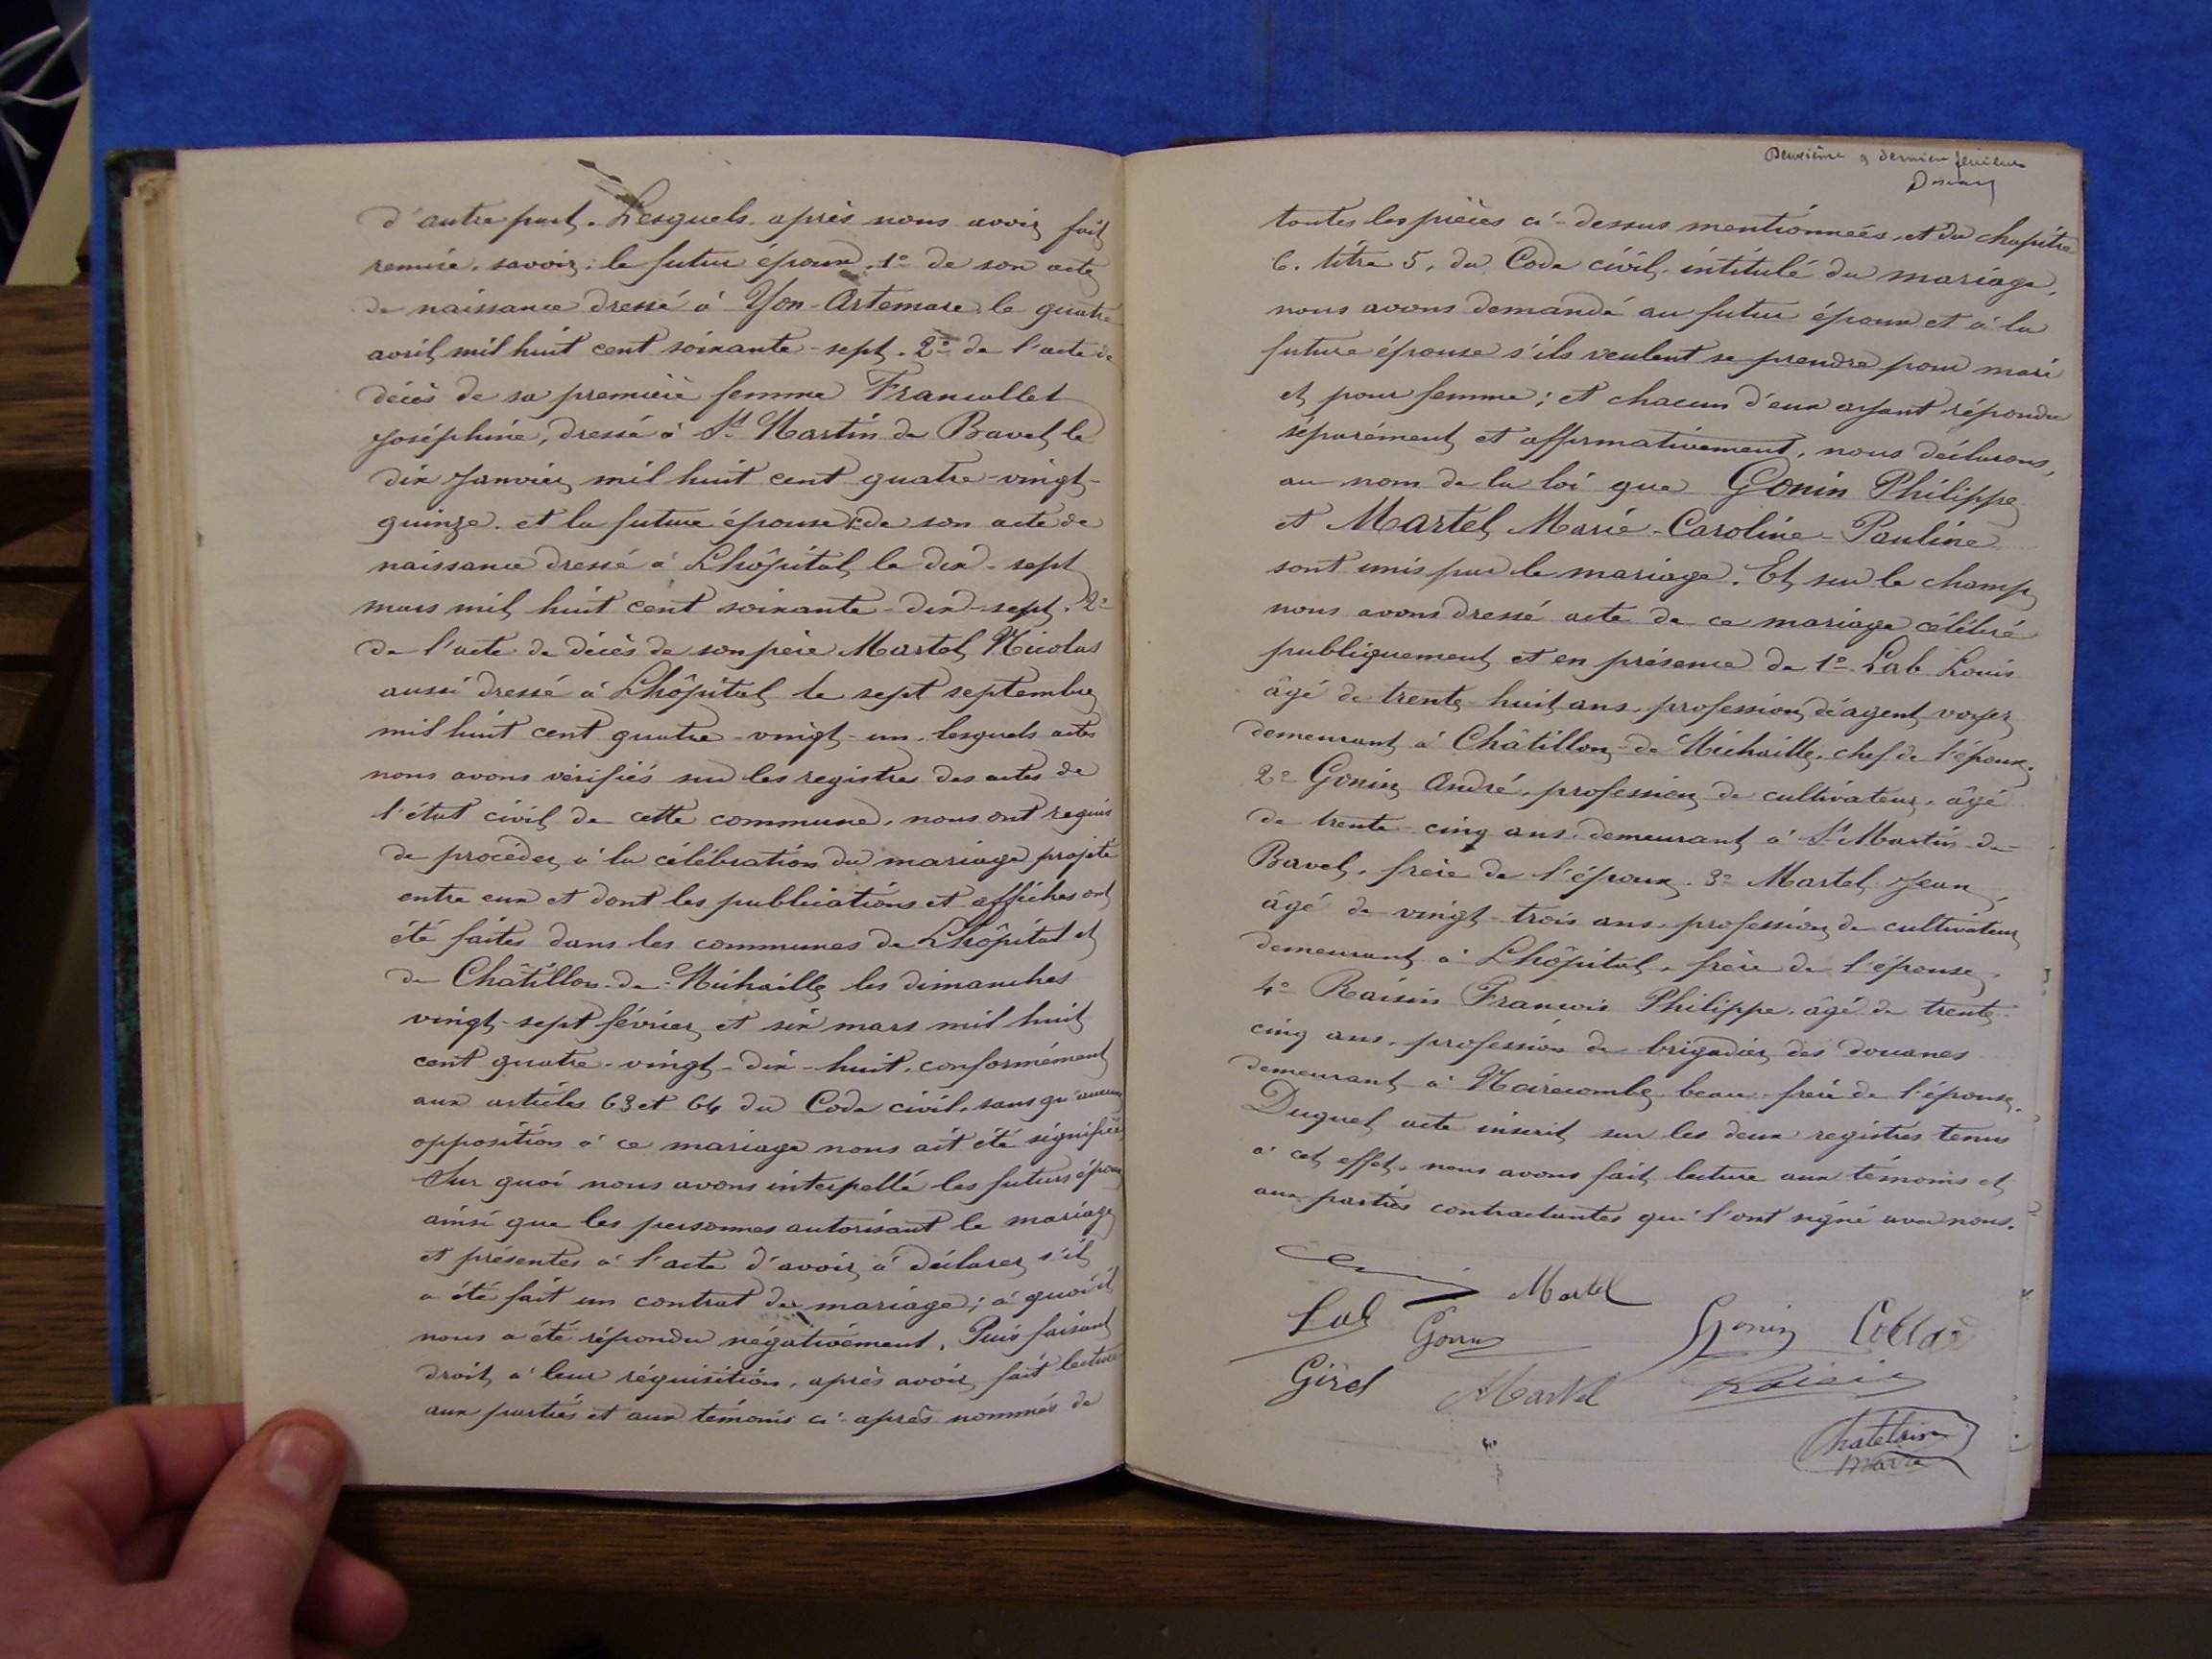 d'autre part. Lesquels après nous avoir fait
remise, savoir: le futur époux, 1° de son acte
de naissance dressé à Yon-Artemare le quatre
avril mil huit cent soixante-sept. 2° de l'acte de
décès de sa première femme Francollet
Joséphine, dressé à St Martin de Bavel le
dix Janvier mil huit cent quatre-vingt-
quinze. et la future épouse 1° de son acte de
naissance dressé à Lhôpital le dix-sept
mars mil huit cent soixante-dix-sept. 2°
de l'acte de décès de son père Martel Nicolas
aussi dressé à Lhôpital le sept septembre
mil huit cent quatre-vingt-un. lesquels actes
nous avons vérifiés sur les registres des actes de
l'état civil de cette commune, nous ont requis
de procéder à la célébration du mariage projeté
entre eux et dont les publications et affiches ont
été faites dans les communes de Lhôpital et
de Châtillon-de-Michaille les dimanches
vingt-sept février et six mars mil huit
cent quatre-vingt-dix-huit, conformément
aux articles 63 et 64 du Code civil, sans qu'aucune
opposition à ce mariage nous ait été signifiée
Sur quoi nous avons interpellé les futurs époux
ainsi que les personnes autorisant le mariage
et présentes à l'acte d'avoir à déclarer s'il
a été fait un contrat de mariage; à quoi il
nous a été répondu négativement. Puis faisant
droit à leur réquisition, après avoir fait lecture
aux parties et aux témoins ci-après nommés de
Deuxième & dernier feuillet
toutes les pièces ci-dessus mentionnées, et du chapitre
6. titre 5, du Code civil, intitulé du mariage,
nous avons demandé au futur époux et à la
future épouse s'ils veulent se prendre pour mari
et pour femme; et chacun d'eux ayant répondu
séparément et affirmativement, nous déclarons,
au nom de la loi que Gonin Philippe
et Martel Marie-Caroline-Pauline
sont unis par le mariage. Et sur le champ
nous avons dressé acte de ce mariage célébré
publiquement et en présence de 1° Lab Louis
âgé de trente-huit ans, profession d'agent voyer
demeurant à Châtillon-de-Michaille, chef de l'époux.
2° Gonin André, profession de cultivateur, âgé
de trente-cinq ans, demeurant à St Martin-de-
Bavel, frère de l'époux. 3° Martel Jean,
âgé de vingt-trois ans, profession de cultivateur
demeurant à Lhôpital, frère de l'épouse.
4° Raisin François Philippe, âgé de trente-
cinq ans, profession de brigadier des douanes
demeurant à Noirecombe, beau-frère de l'épouse.
Duquel acte inscrit sur les deux registres tenus
à cet effet, nous avons fait lecture aux témoins et
aux parties contractantes qui l'ont signé avec nous.
Martel
Lab Gonin Gonin Collad
Girel Martel Raisin
Chatelain
Maire